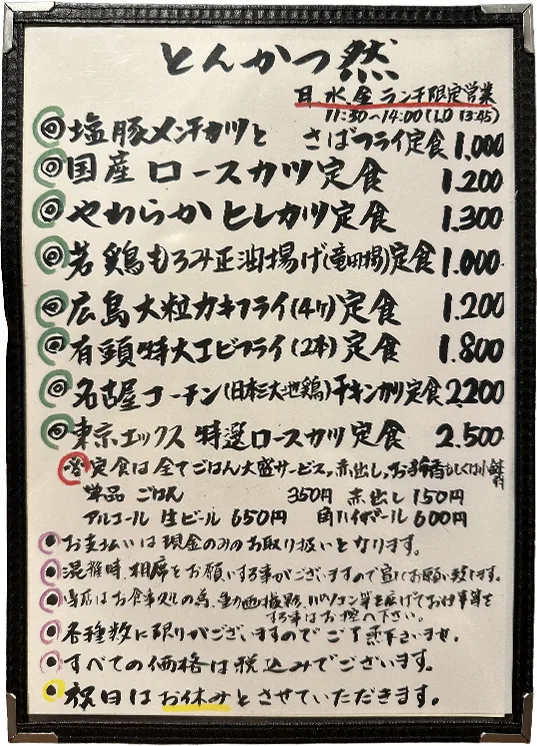 とんかつ然
月 水 金 ランチ限定営業
11:30〜14:00 (L.O 13:45)
◎塩豚メンチカツと さばフライ定食 1.000
◎国産 ロースカツ定食 1.200
◎やわらか ヒレカツ定食 1.300
◎若鶏もろみ正油揚げ(竜田揚)定食 1.000
◎広島大粒カキフライ(4ケ)定食 1.200
◎有頭特大エビフライ(2本)定食 1.800
◎名古屋コーチン(日本三大地鶏)チキンカツ定食 2.200
◎東京エックス 特選ロースカツ定食 2.500
定食は全てごはん大盛サービス。赤出し、お新香もしくは小鉢付
単品 ごはん 350円 赤出し 150円
アルコール 生ビール 650円 角ハイボール 600円
●お支払いは現金のみのお取り扱いとなります。
●混雑時、相席をお願いする事がございますので宜しくお願い致します。
●当店はお食事処の為、動画撮影、パソコン等を広げてお仕事等を
する事はお控え下さい。
●各種数に限りがございますのでご了承下さいませ。
●すべての価格は税込みでございます。
●祝日はお休みとさせていただきます。